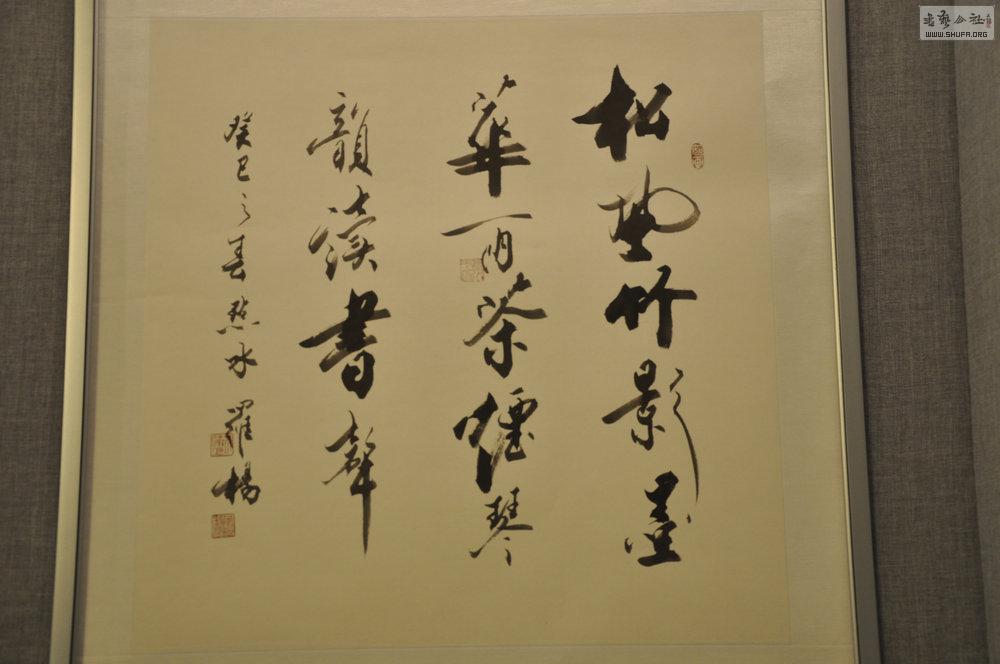 松風竹影墨
華一閒茶煙琴
韻讀書聲
癸巳之春 點冰 羅楊
書藝公社
WWW.SHUFA.ORG